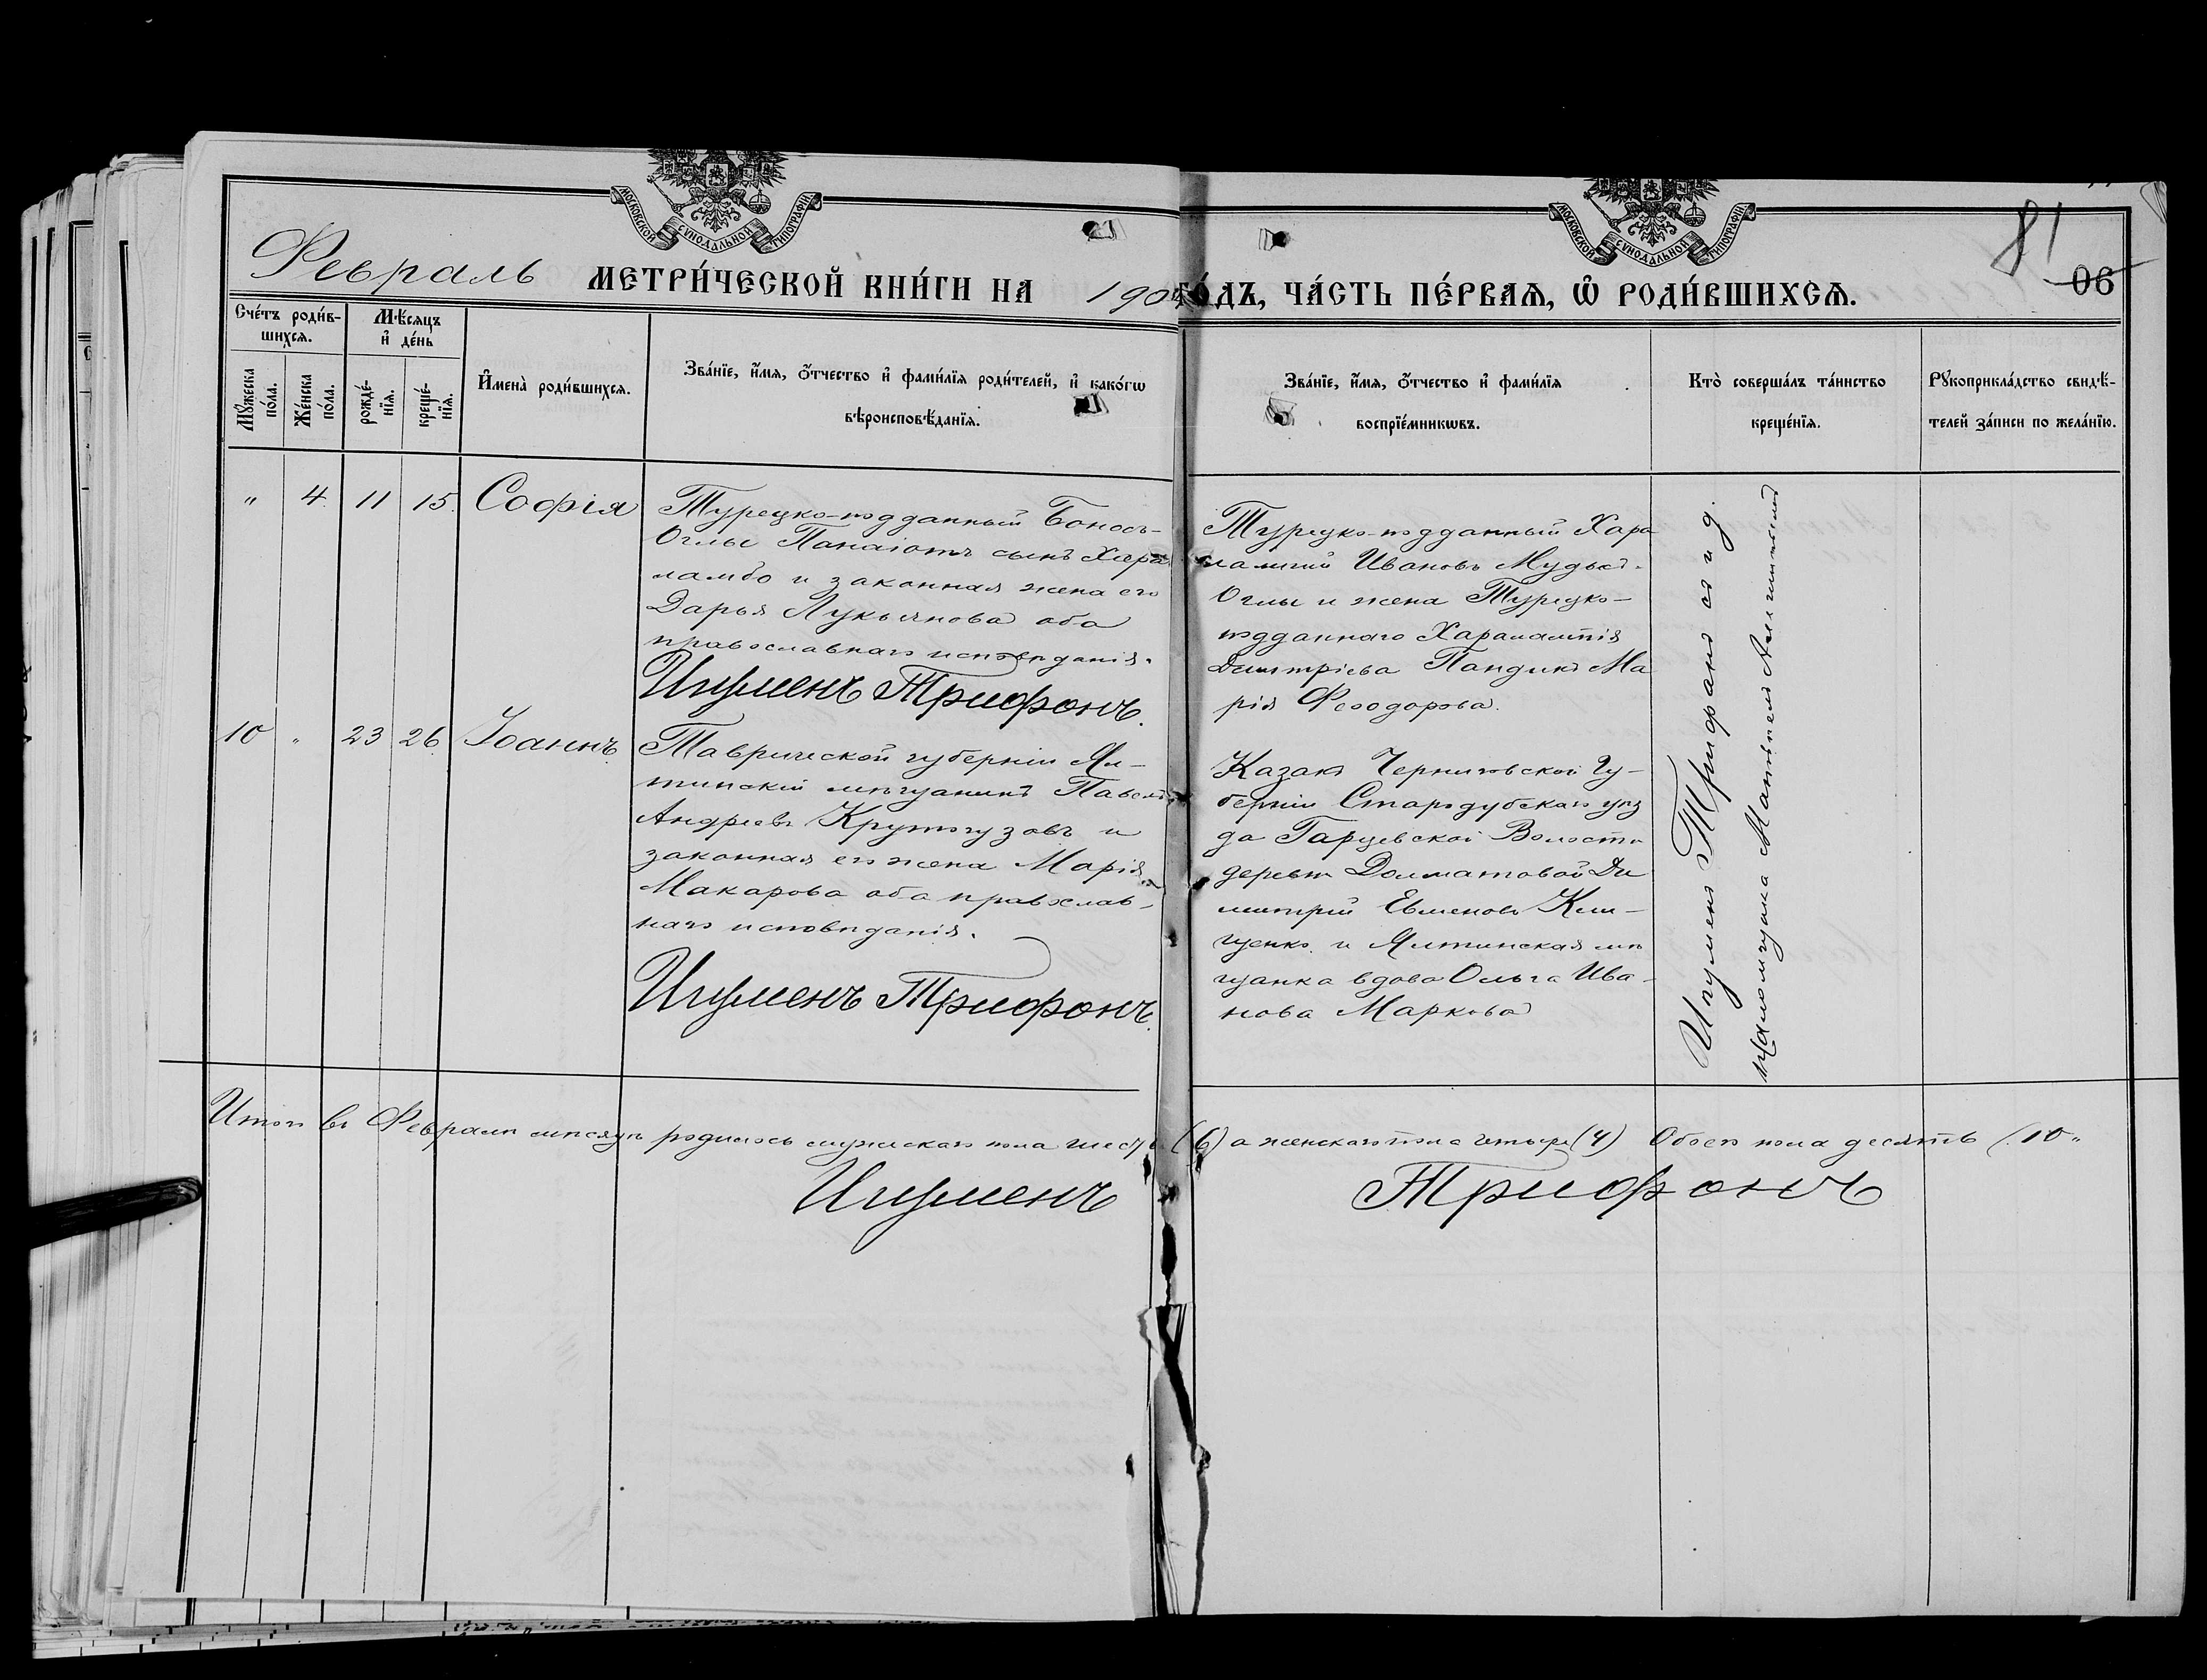 МОСКОВСКОЙ СѴНОДАЛЬНОЙ ТИПОГРАФІИ.
МОСКОВСКОЙ СѴНОДАЛЬНОЙ ТИПОГРАФІИ.
81
06
Февраль МЕТРИ́ЧЕСКОЙ КНИ́ГИ НА 190 ГО́ДЪ, ЧА́СТЬ ПЕ́РВАѦ, Ѡ҆ РОДИ́ВШИХСѦ.
Сче́тъ роди́в-
шихсѧ.
Мꙋ́жеска по́ла.
Же́нска по́ла.
Мѣ́сѧцъ
и҆ де́нь
рожде́-
нїѧ.
креще́-
нїѧ.
И҆мена̀ роди́вшихсѧ.
Зва́нїе, и҆́мѧ, ѻ҆́тчество и҆ фами́лїѧ роди́телей, и҆ како́гѡ
вѣроисповѣ́данїѧ.
Зва́нїе, и҆́мѧ, ѻ҆́тчество и҆ фами́лїѧ
воспрїе́мникѡвъ.
Кто̀ соверша́лъ та́инство
креще́нїѧ.
Рꙋкоприкла́дство свидѣ́-
телей за́писи по жела́нїю.
" 4. 11 15. Софія
Турецко-подданный Боносъ-
Оглы Панаіотъ сынъ Хара
лампо и законная жена его
Дарья Лукьянова оба
православнаго исповѣданія.
Игуменъ Трифонъ.
Турецко-подданный Хара
лампій Ивановъ
Оглы и жена Турецко-
подданнаго Харалампія
Димитріева Ма
рія Феодорова.
10 " 23 26 Іоаннъ
Таврической губерніи Ял-
тинскій мѣщанинъ Павелъ
Андреевъ Крутогузовъ и
законная его жена Марія
Макарова оба православ-
наго исповѣданія.
Игуменъ Трифонъ.
Казакъ Черниговской Гу-
берніи Стародубскаго уѣз
да Гарцевской Волости
деревни Долматовой Ди
митрій Евменовъ Кли-
щенко и Ялтинская мѣ
щанка вдова Ольга Ива-
нова Маркова
Игуменъ Трифонъ съ и. д.
псаломщика
Итого въ Февралѣ мѣсяцѣ родилось мужскаго пола шесть (6) а женскаго пола четыре (4) Обоего пола десять (10
Игуменъ Трифонъ